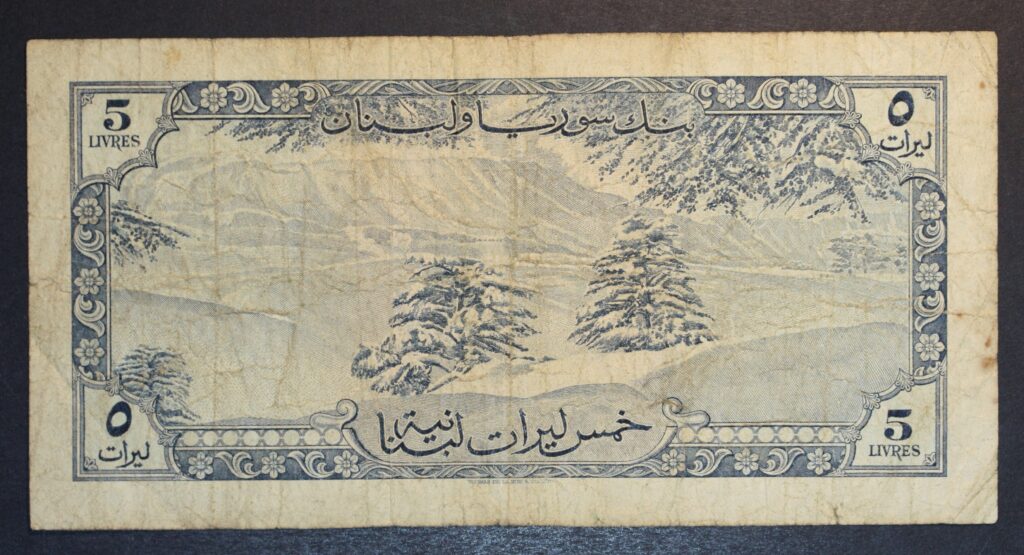 5
LIVRES
بنك سوريا ولبنان
٥
ليرات
٥
ليرات
خمس ليرات لبنانية
5
LIVRES